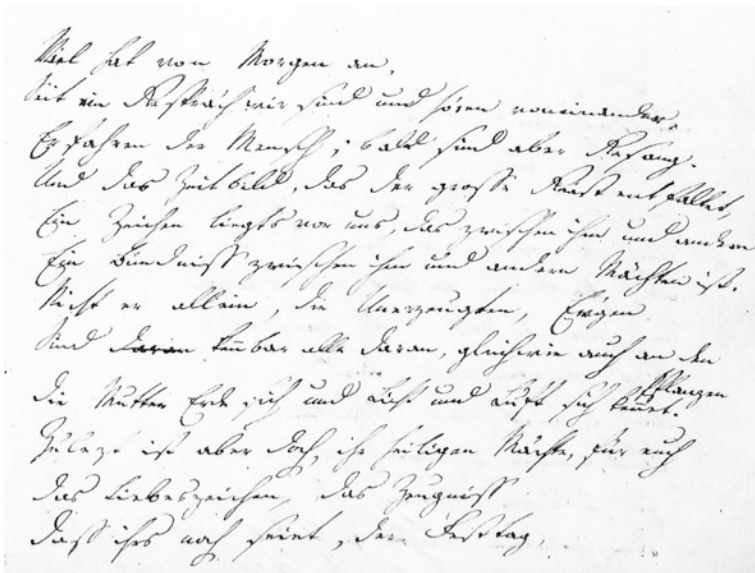 Viel hat von Morgen an,
Seit ein Gespräch wir sind und hören voneinander,
Erfahren der Mensch; bald sind aber Gesang.
Und das Zeitbild, das der grosse Geist entfaltet,
Ein Zeichen liegts vor uns, das zwischen ihm und andern
Ein Bündniss zwischen ihm und andern Mächten ist.
Nicht er allein, die Unerzeugten, Ewgen
Sind daran keñbar alle daran, gleichwie auch an den Pflanzen
die Mutter Erde sich und Licht und Luft sich keñet.
Zulezt ist aber doch, ihr heiligen Mächte, für euch
das Liebeszeichen, das Zeugniss
dass ihrs noch seiet, der Festtag,